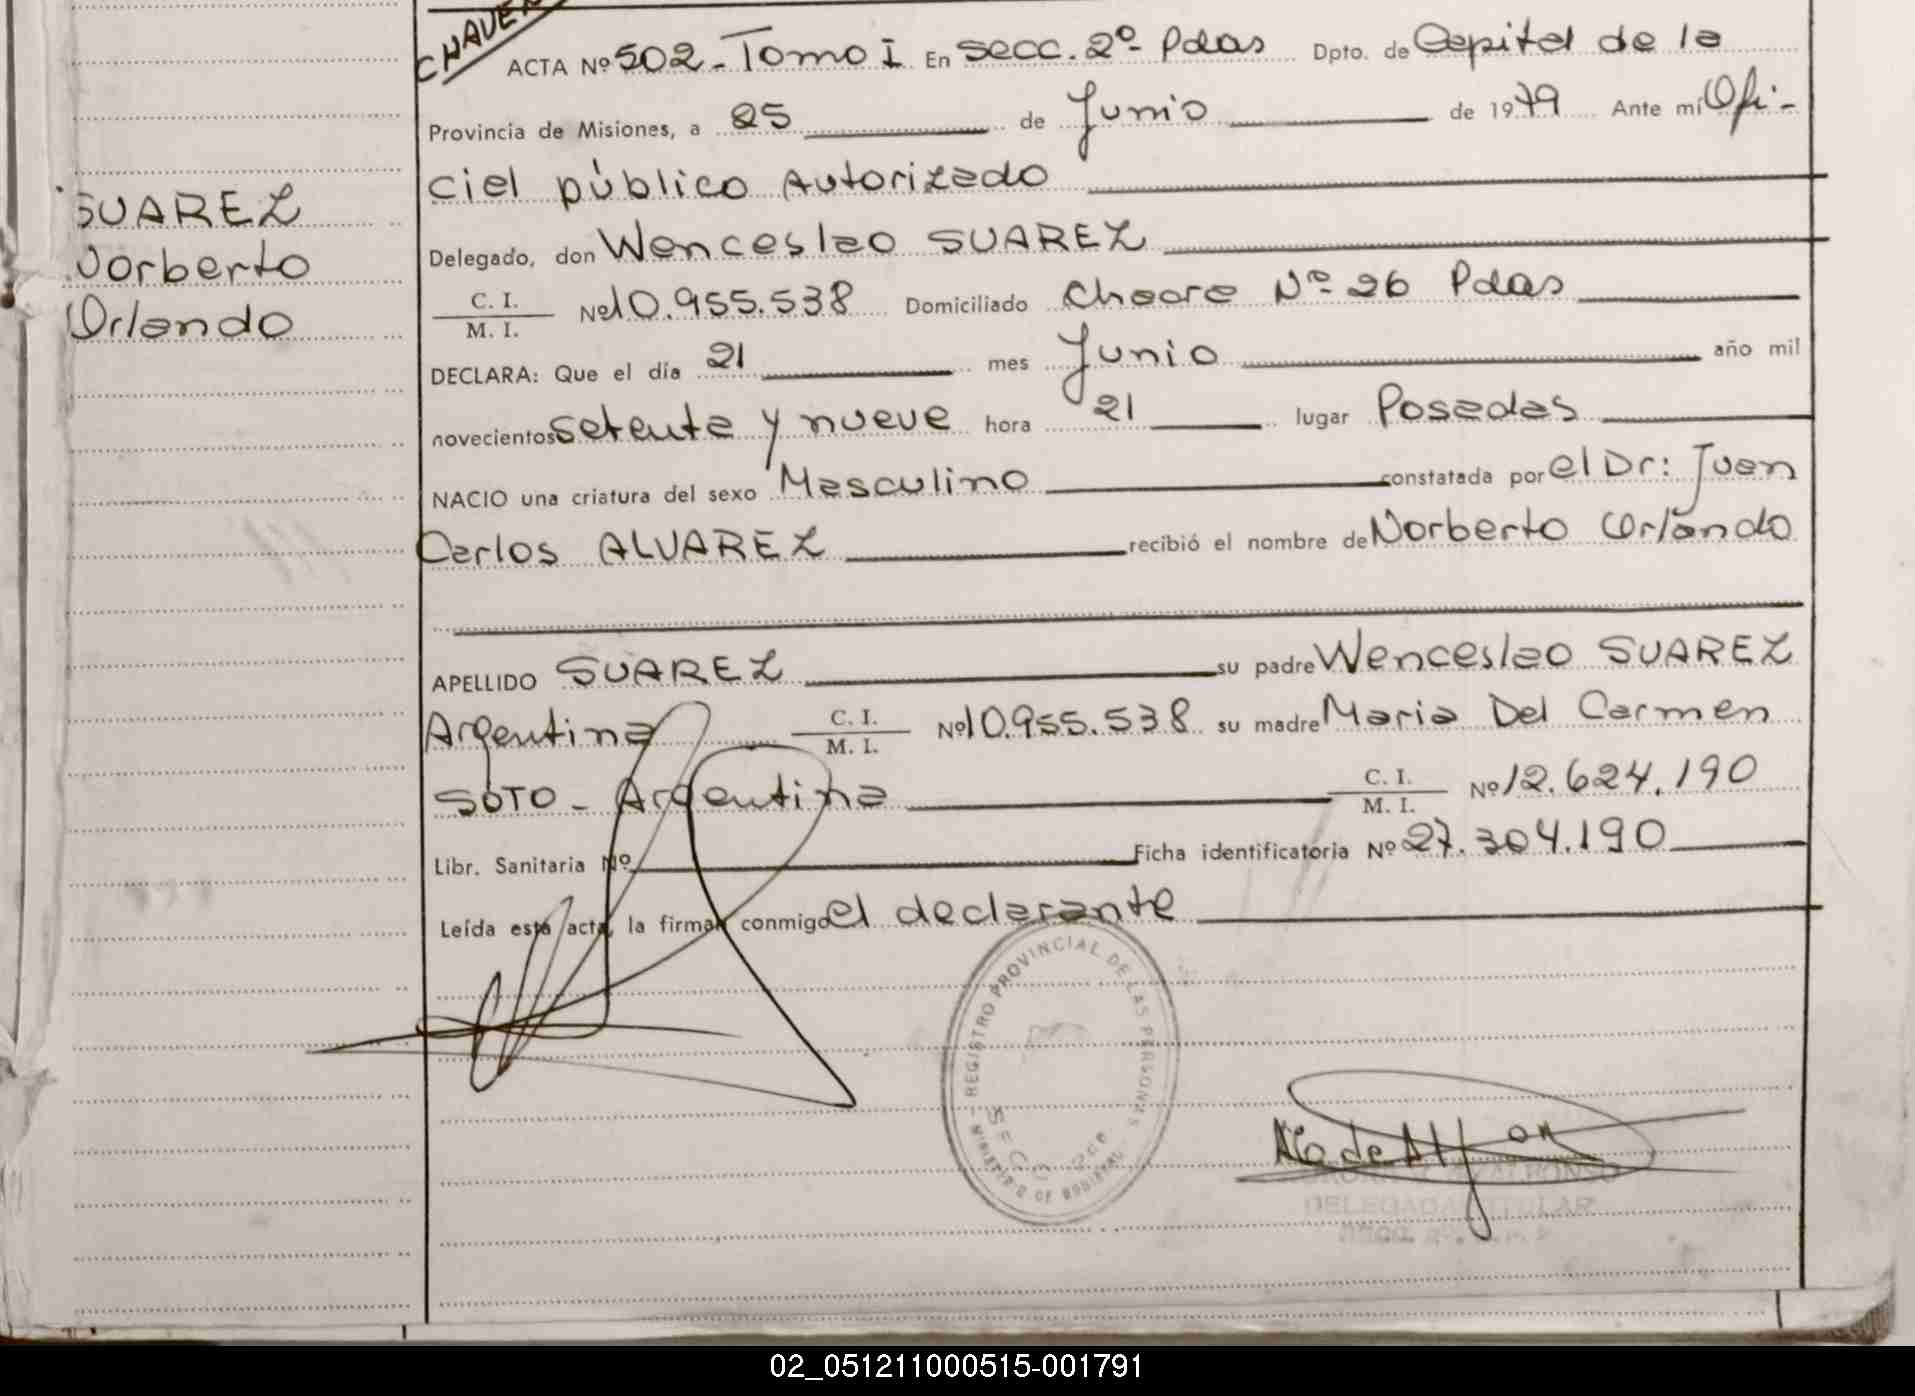 CHAVE
ACTA Nº 502 - Tomo I En Secc. 2º Pdas Dpto. de Capital de la
Provincia de Misiones, a 25 de Junio de 1979 Ante mí Ofi-
cial público Autorizado
SUAREZ
Norberto
Orlando
Delegado, don Wenceslao SUAREZ
C. I. / M. I. Nº 10.955.538 Domiciliado Chacra Nº 26 Pdas
DECLARA: Que el día 21 mes Junio año mil
novecientos setenta y nueve hora 21 lugar Posadas
NACIO una criatura del sexo Masculino constatada por el Dr: Juan
Carlos ALVAREZ recibió el nombre de Norberto Orlando
APELLIDO SUAREZ su padre Wenceslao SUAREZ
Argentina C. I. / M. I. Nº 10.955.538 su madre Maria Del Carmen
SOTO - Argentina C. I. / M. I. Nº 12.624.190
Libr. Sanitaria Nº Ficha identificatoria Nº 27.304.190
Leída esta acta, la firman conmigo el declarante
REGISTRO PROVINCIAL DE LAS PERSONAS
MINISTERIO DE GOBIERNO
SECC
DELEGADA TITULAR
02_051211000515-001791